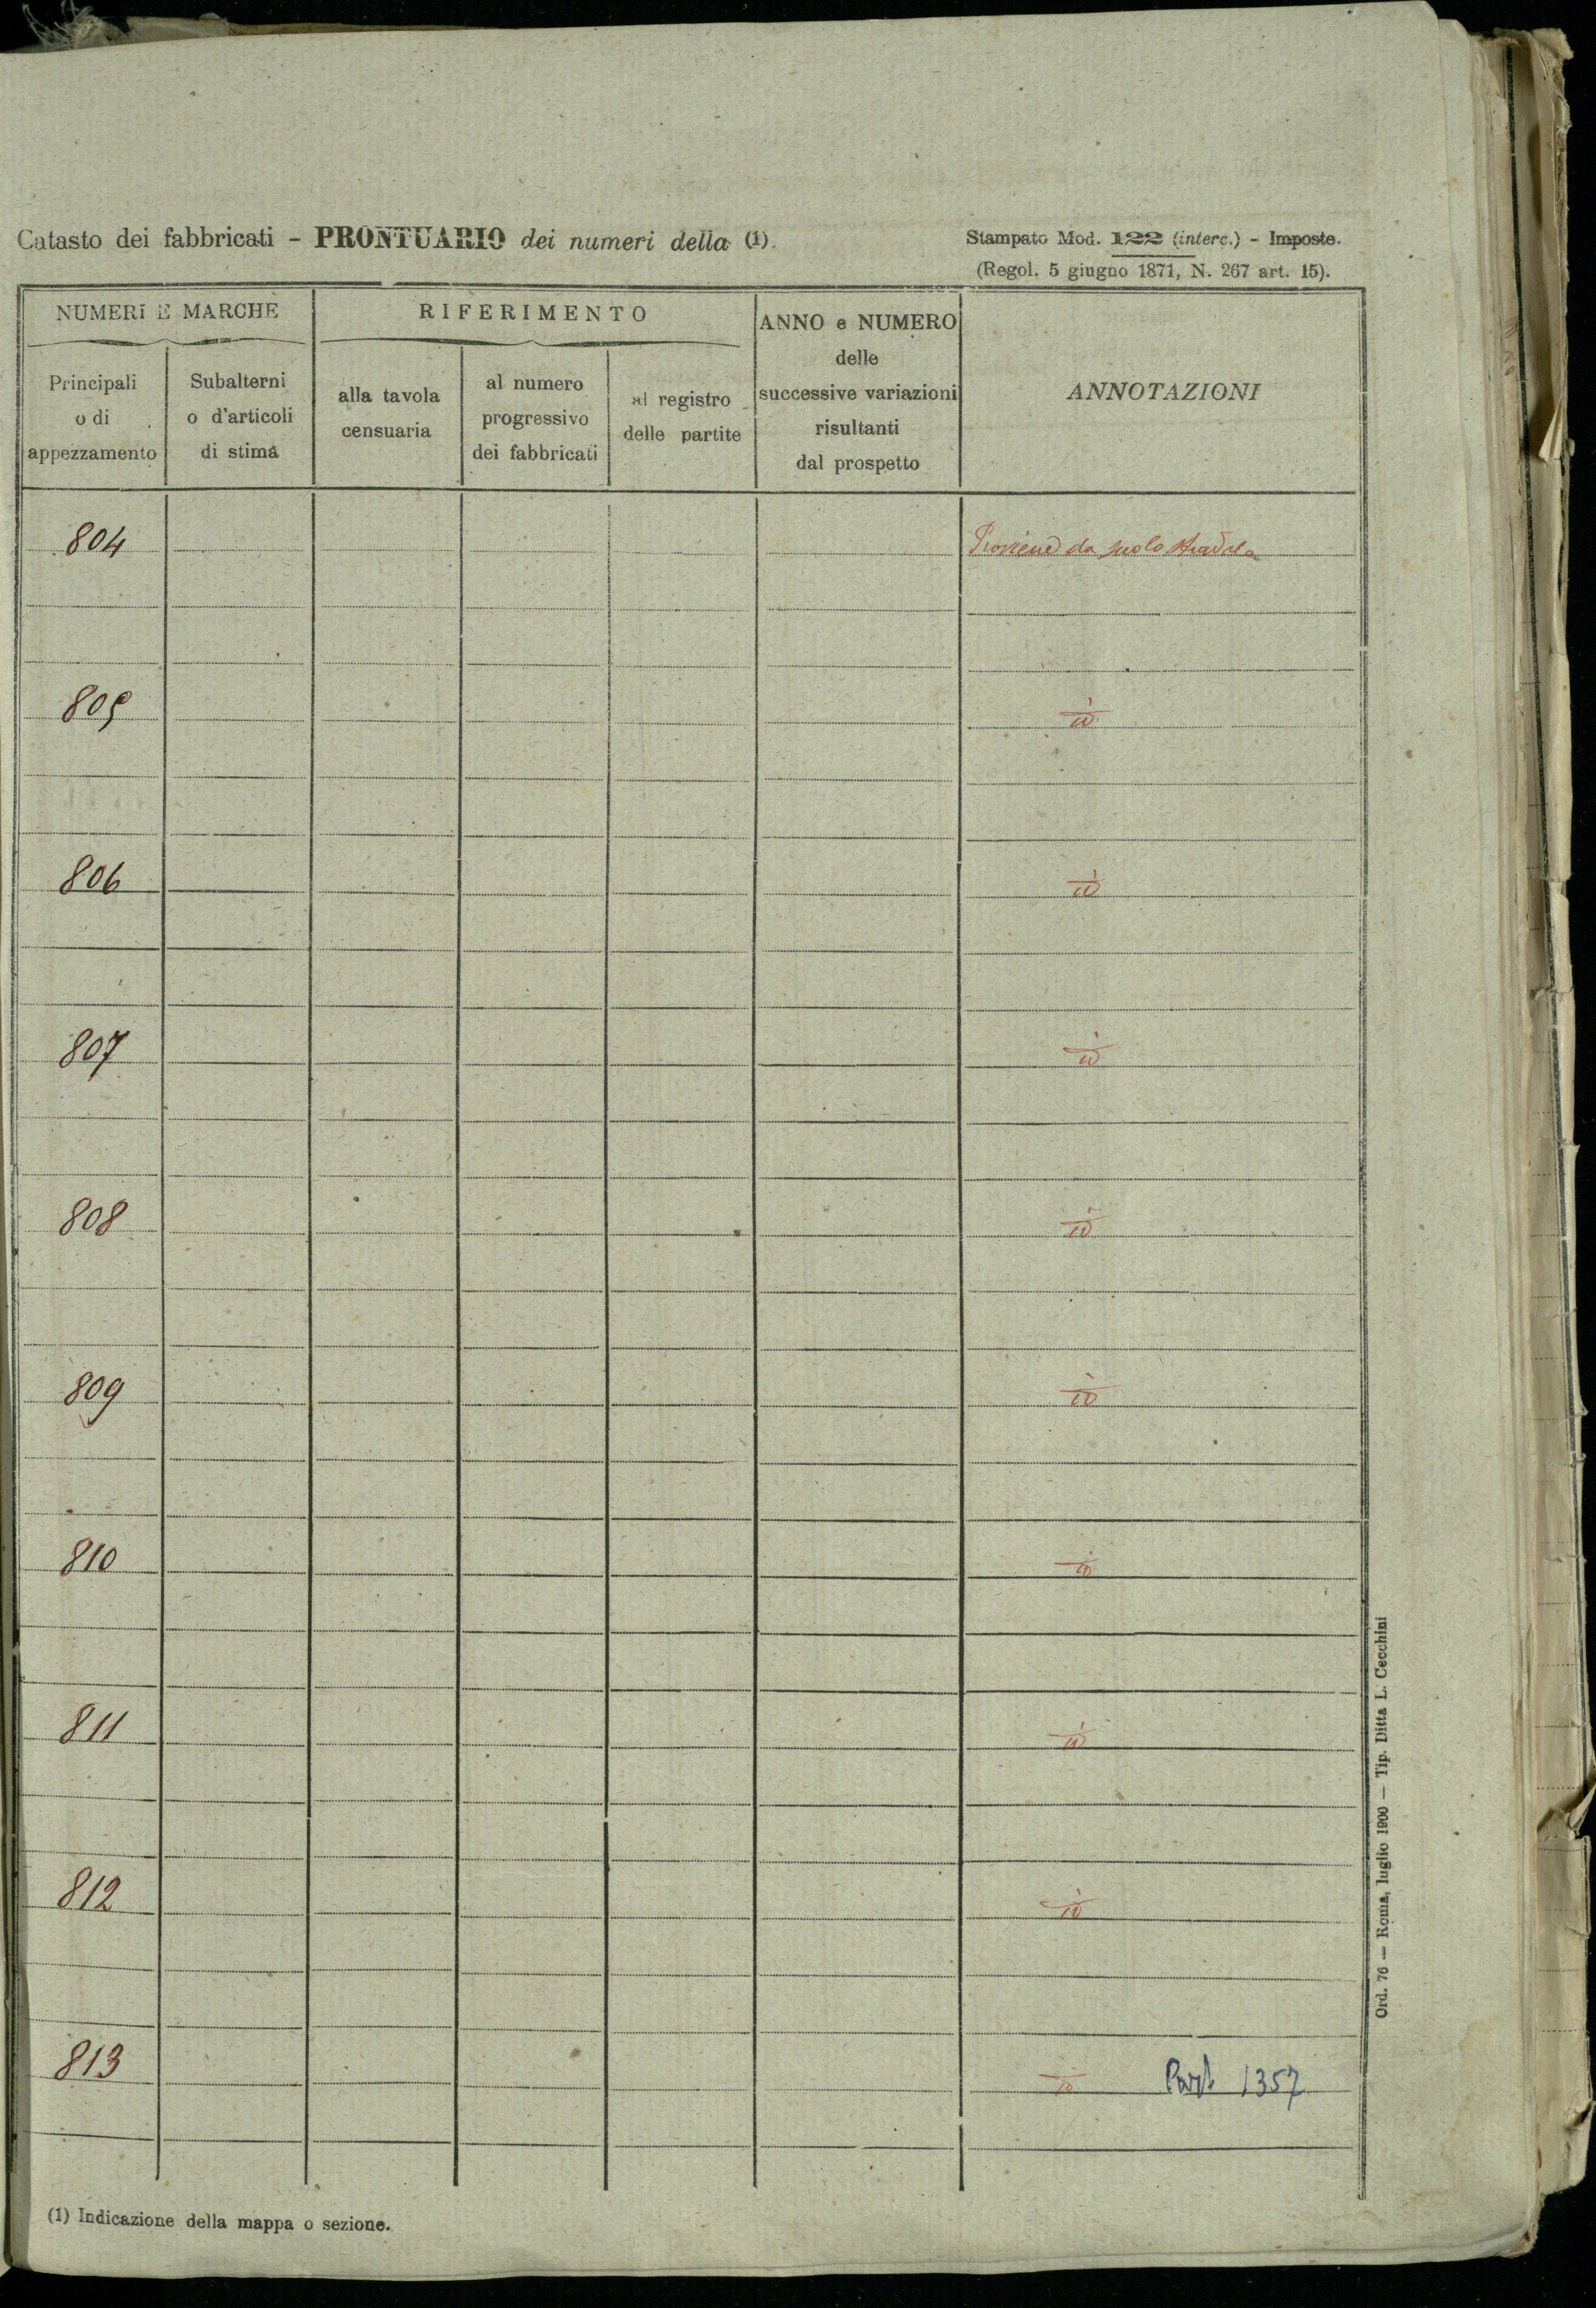 Catasto dei fabbricati - PRONTUARIO dei numeri della (1).
Stampato Mod. 122 (interc.) - Imposte.
(Regol. 5 giugno 1871, N. 267 art. 15).
NUMERI E MARCHE
RIFERIMENTO
ANNO e NUMERO
delle
successive variazioni
risultanti
dal prospetto
ANNOTAZIONI
Principali
o di
appezzamento
Subalterni
o d'articoli
di stima
alla tavola
censuaria
al numero
progressivo
dei fabbricati
al registro
delle partite
804 Proviene da suolo stradale
805 id
806 id
807 id
808 id
809 id
810 id
811 id
812 id
813 id Part 1357
(1) Indicazione della mappa o sezione.
Ord. 76 — Roma, luglio 1900 — Tip. Ditta L. Cecchini